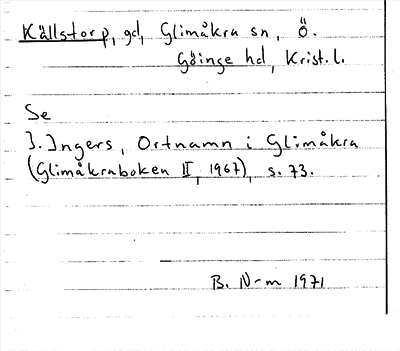 Källstorp, gd, Glimåkra sn, Ö.
Göinge hd, Krist. l.
Se
I. Ingers, Ortnamn i Glimåkra
(Glimåkraboken II, 1967), s. 73.
B. N-m 1971